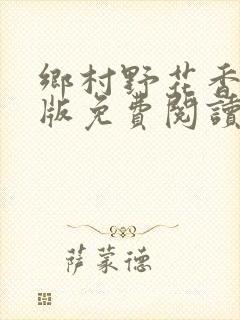 鄉村野花香
版免費閱讀
薩蒙德